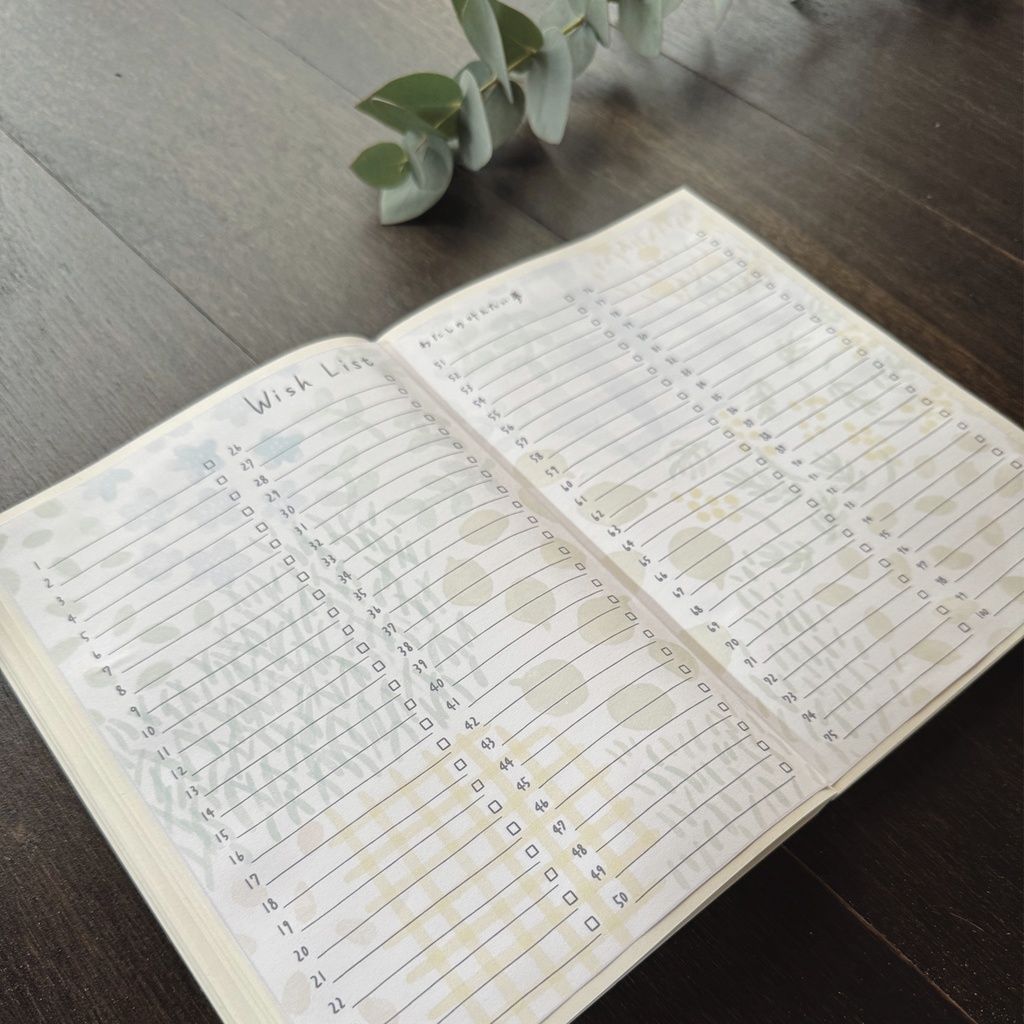 Wish List
1
2
3
4
5
6
7
8
9
10
11
12
13
14
15
16
17
18
19
20
21
22
26
27
28
29
30
31
32
33
34
35
36
37
38
39
40
41
42
43
44
45
46
47
48
49
50
51
52
53
54
55
56
57
58
59
60
61
62
63
64
65
66
67
68
69
70
71
72
73
74
75
99
100